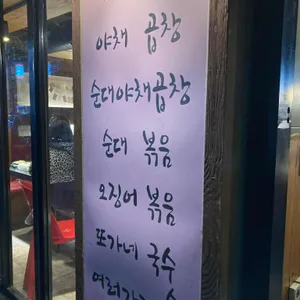 야채 곱창
순대야채곱창
순대 볶음
오징어 볶음
또가네 국수